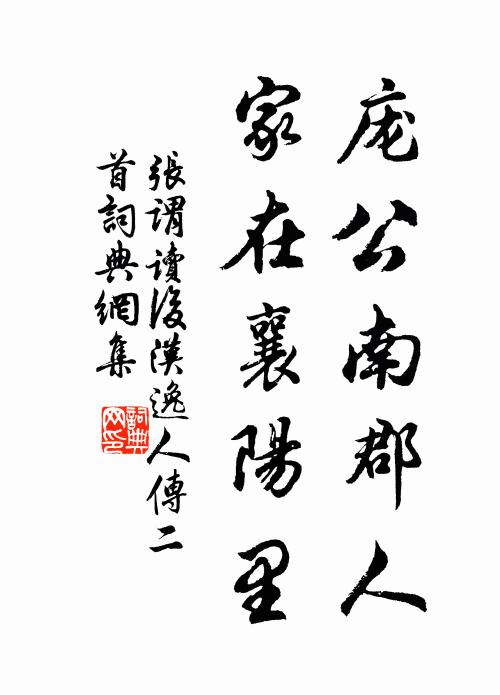 庞公南郡人
家在襄陽里
張谓讀後漢逸人傳二
首詞典網集
詞典網印